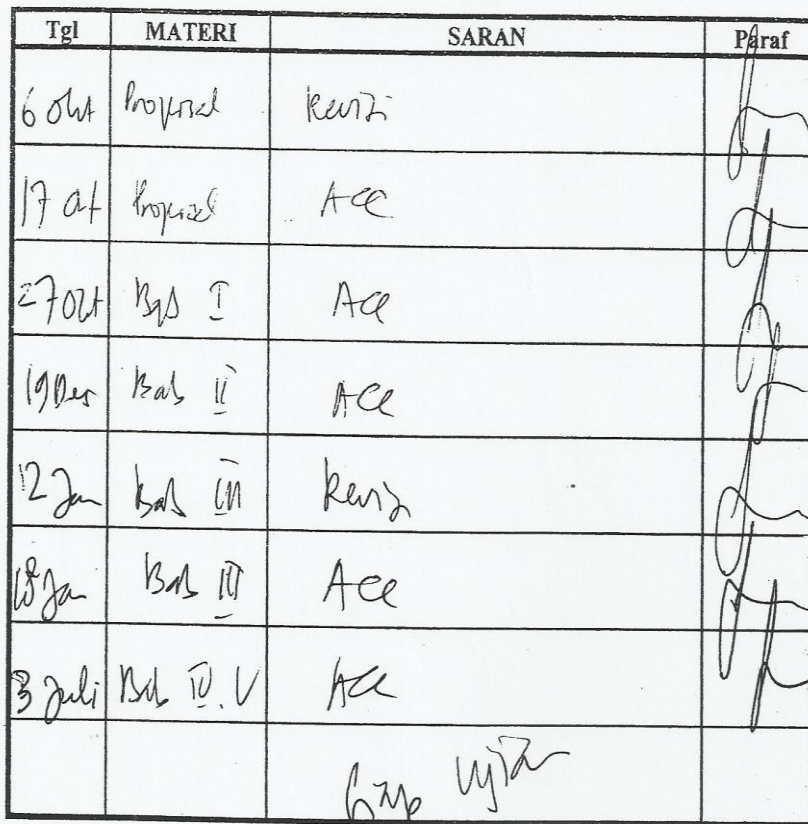 Tgl MATERI SARAN Paraf
6 Okt Proposal Revisi
17 Okt Proposal Acc
27 Okt Bab I Acc
19 Des Bab II Acc
12 Jan Bab III Revisi
18 Jan Bab III Acc
3 Juli Bab IV. V Acc
Siap Ujian